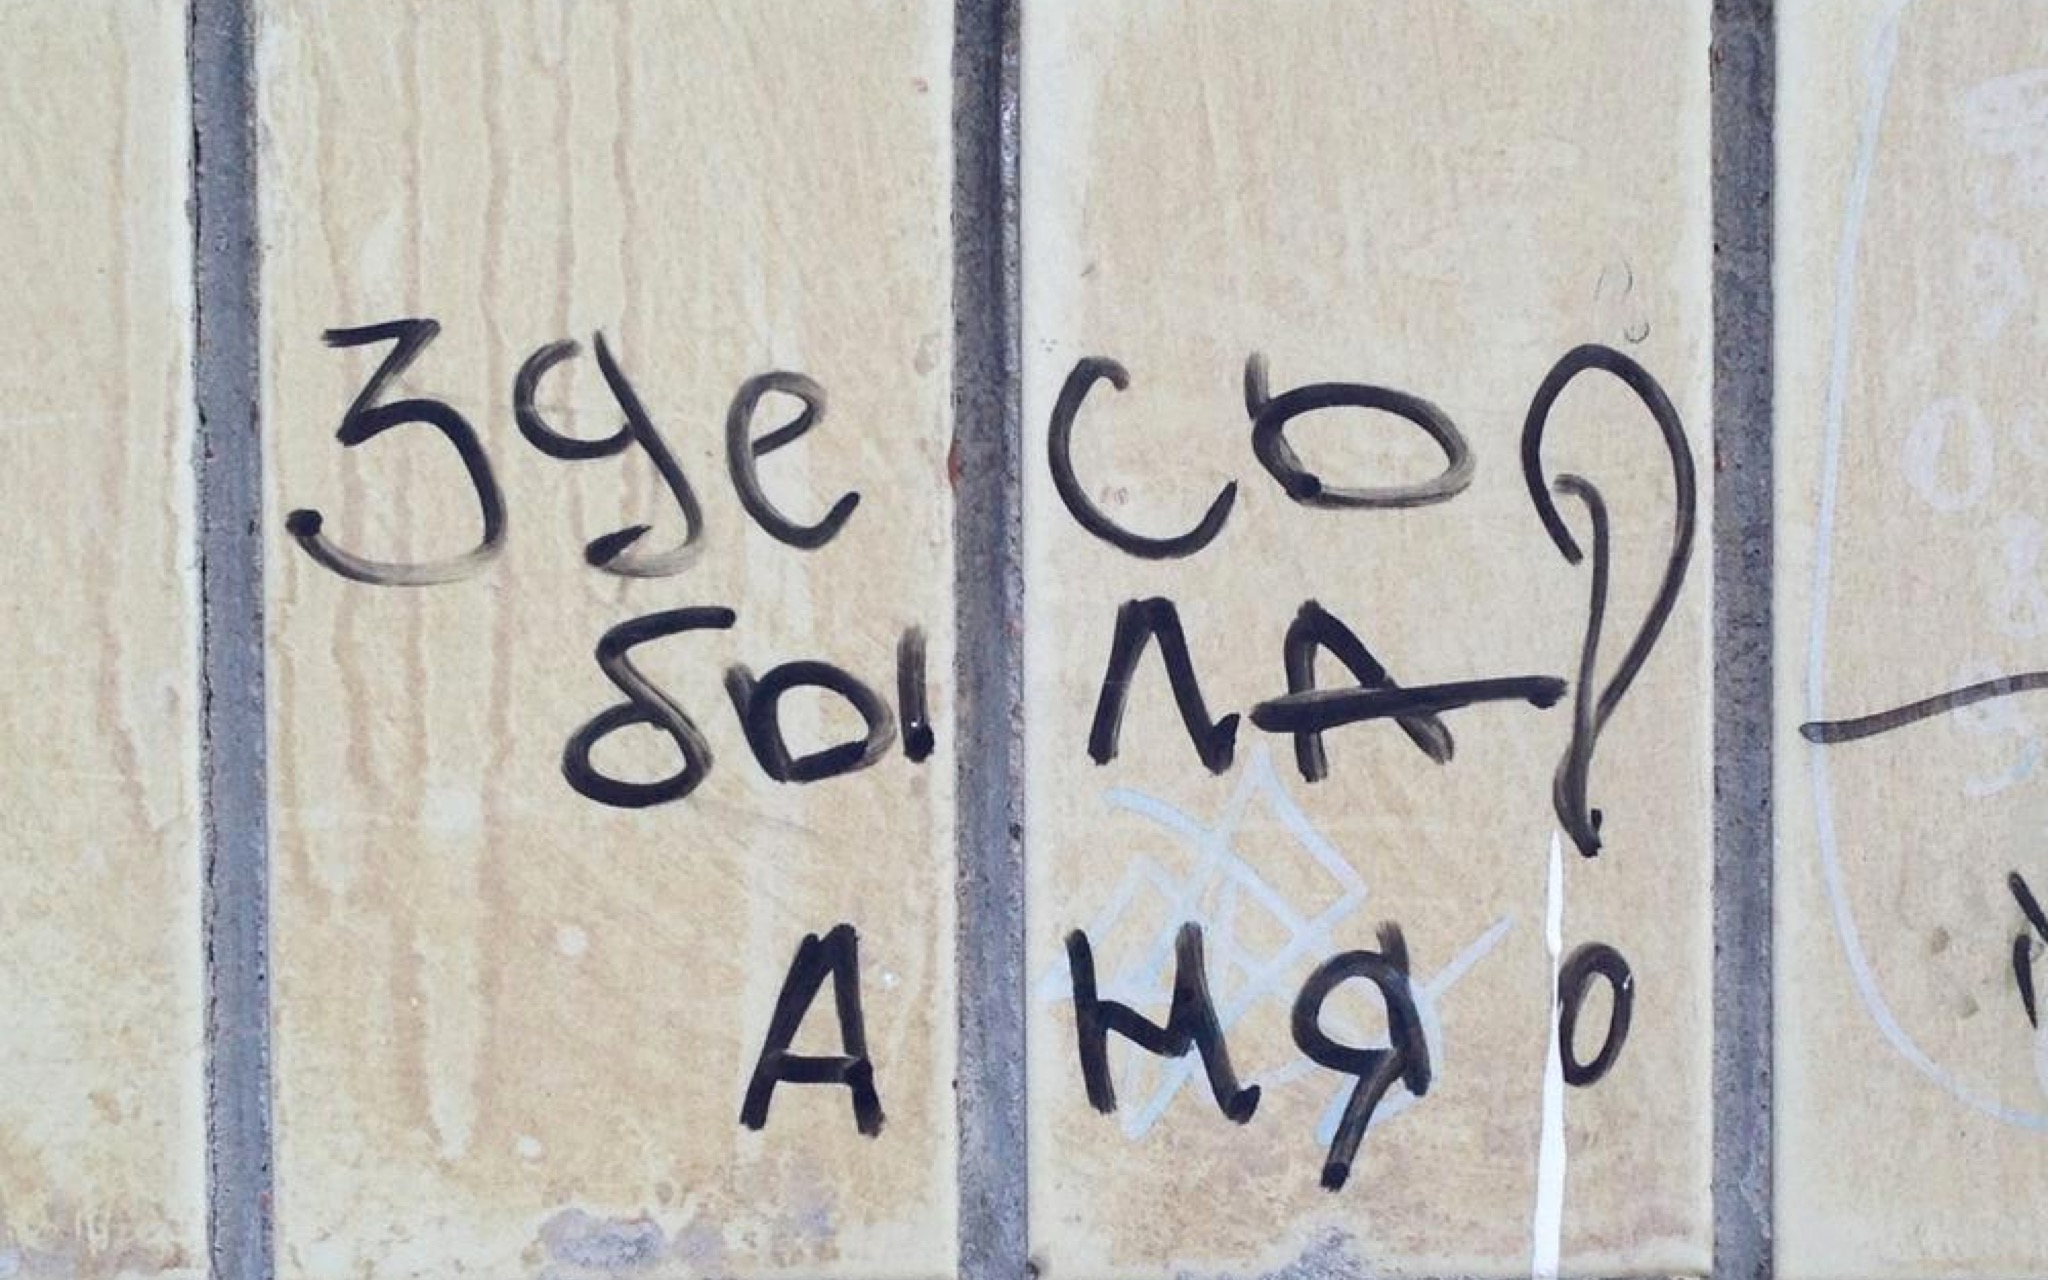 Здесь !
была
Аня